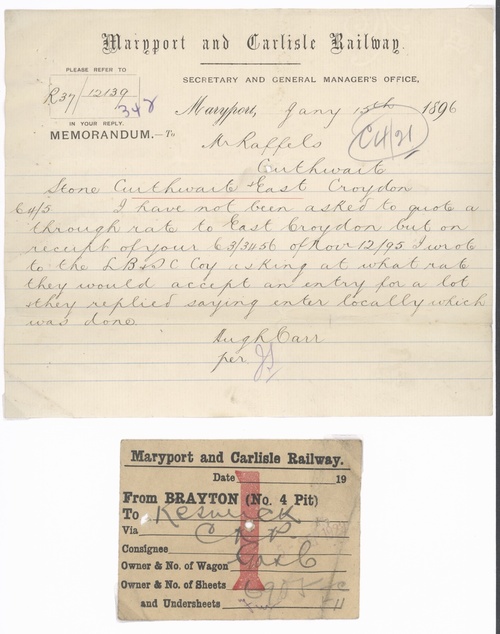 Maryport and Carlisle Railway.
PLEASE REFER TO
SECRETARY AND GENERAL MANAGER'S OFFICE,
R37/12139
348
Maryport, Jany 15th 1896
IN YOUR REPLY.
C4/21
MEMORANDUM.—To
Mr Raffels
Curthwait
Stone Curthwait & East Croydon
C4/5 I have not been asked to quote a
through rate to East Croydon but on
receipt of your C3/3456 of Nov 12/95 I wrote
to the LB&SC Coy asking at what rate
they would accept an entry for a lot
& they replied saying enter locally which
was done
Hugh Carr
per JS
Maryport and Carlisle Railway.
Date 19
From BRAYTON (No. 4 Pit)
To Keswick
Via CKP
Consignee
Owner & No. of Wagon
Owner & No. of Sheets
and Undersheets